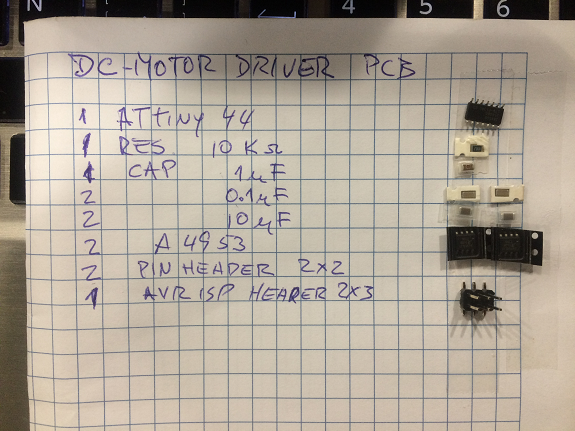 N 4 5 6
DC-MOTOR DRIVER PCB
1 ATtiny 44
1 RES 10 KΩ
1 CAP 1µF
2 0.1µF
2 10µF
2 A4953
2 PIN HEADER 2x2
1 AVR ISP HEADER 2x3